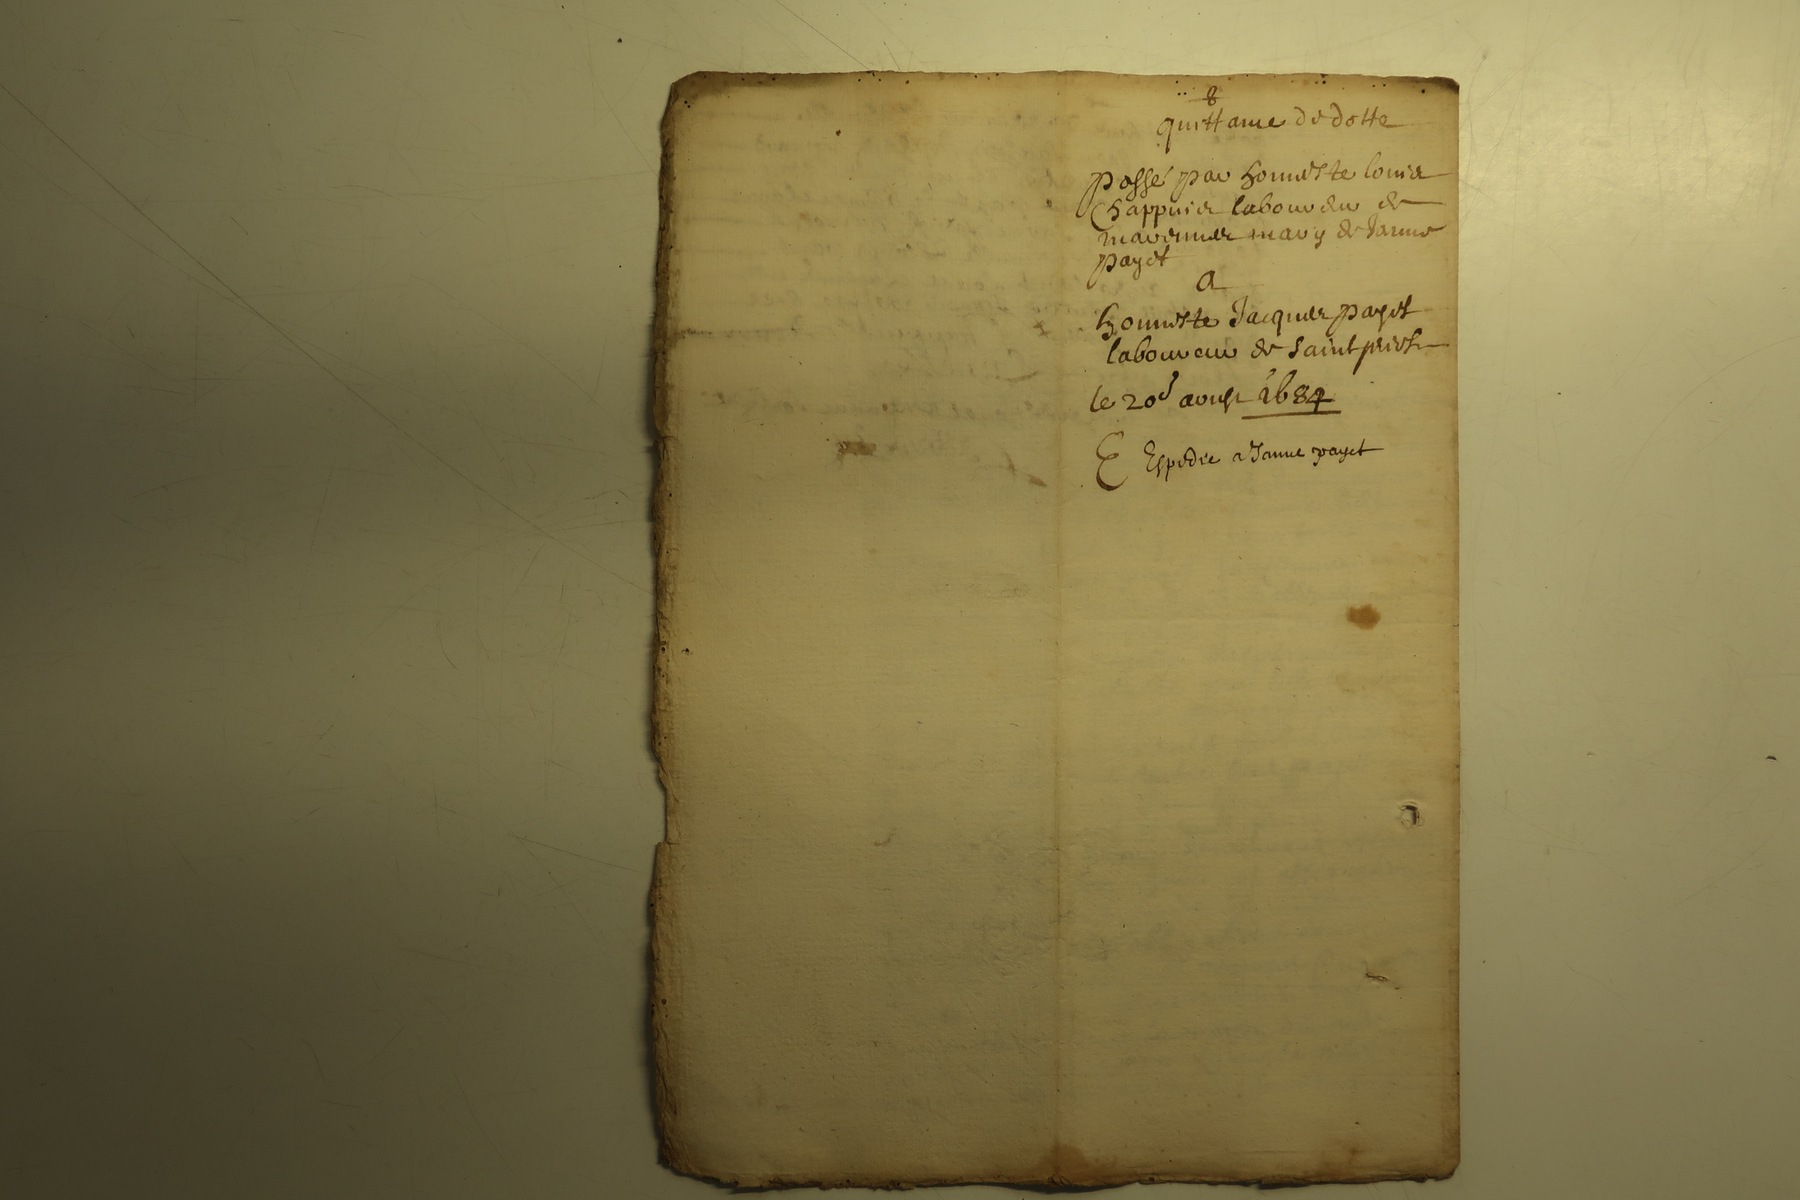 8
quittance de dotte
passé par honneste louis
Chappuis laboureur de
marennes mary de Janne
payet
A
honneste Jacques payet
laboureur de Saint priest
le 20e avril 1684
E Espedie a Janne payet